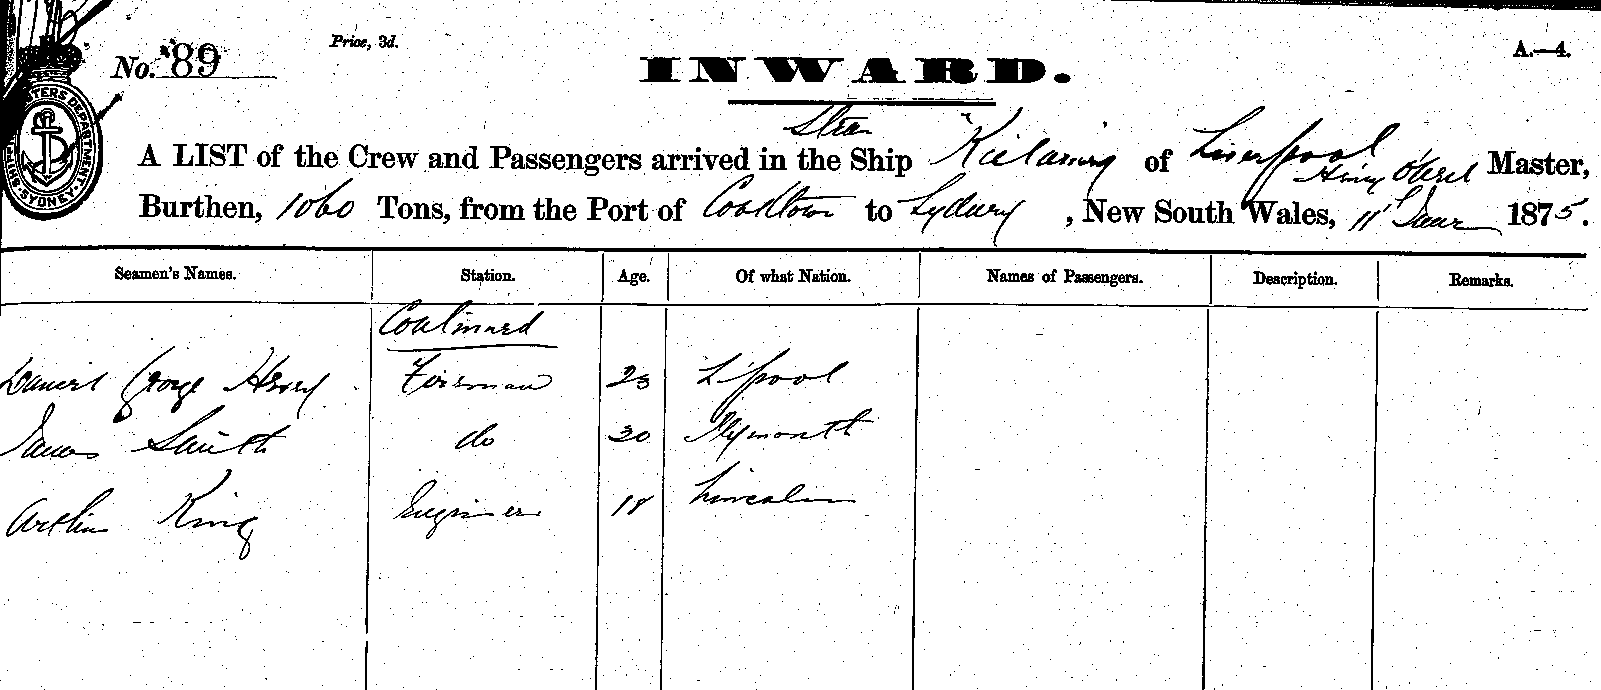 No. 89
Price, 3d.
A.—4.
INWARD.
SHIPPING MASTERS DEPARTMENT
SYDNEY
Str
A LIST of the Crew and Passengers arrived in the Ship "Killarney of Liverpool Henry Master,
Burthen, 1060 Tons, from the Port of Cooktown to Sydney, New South Wales, 11 1875.
Seamen's Names. Station. Age. Of what Nation. Names of Passengers. Description. Remarks.
Continued
Daniel George Henry Fireman 23 L'pool
James Smith do 20 Plymouth
Arthur King Engineer 18 Lincoln